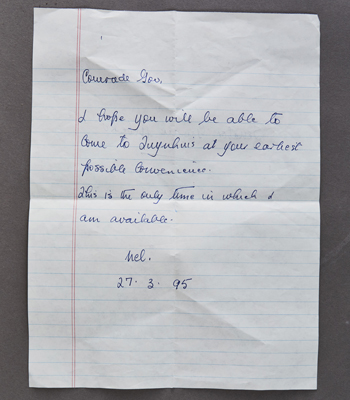 Comrade Gov,
I hope you will be able to
come to Tuynhuis at your earliest
possible convenience.
This is the only time in which I
am available.
Nel.
27. 3. 95